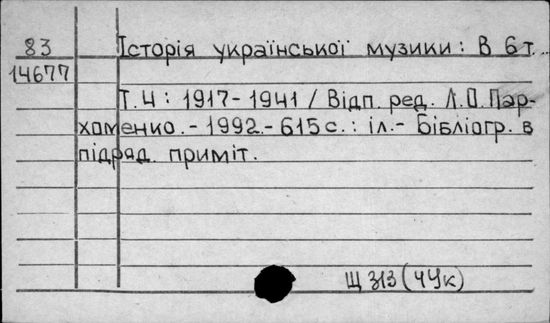 83 Історія української музики: В 6 т. ..
14677
Т. 4: 1917-1941 / Відп. ред. Л.О. Пар-
хоменко. - 1992. - 615 с.: іл. - Бібліогр. в
підряд. приміт.
Щ 313 (4Ук)